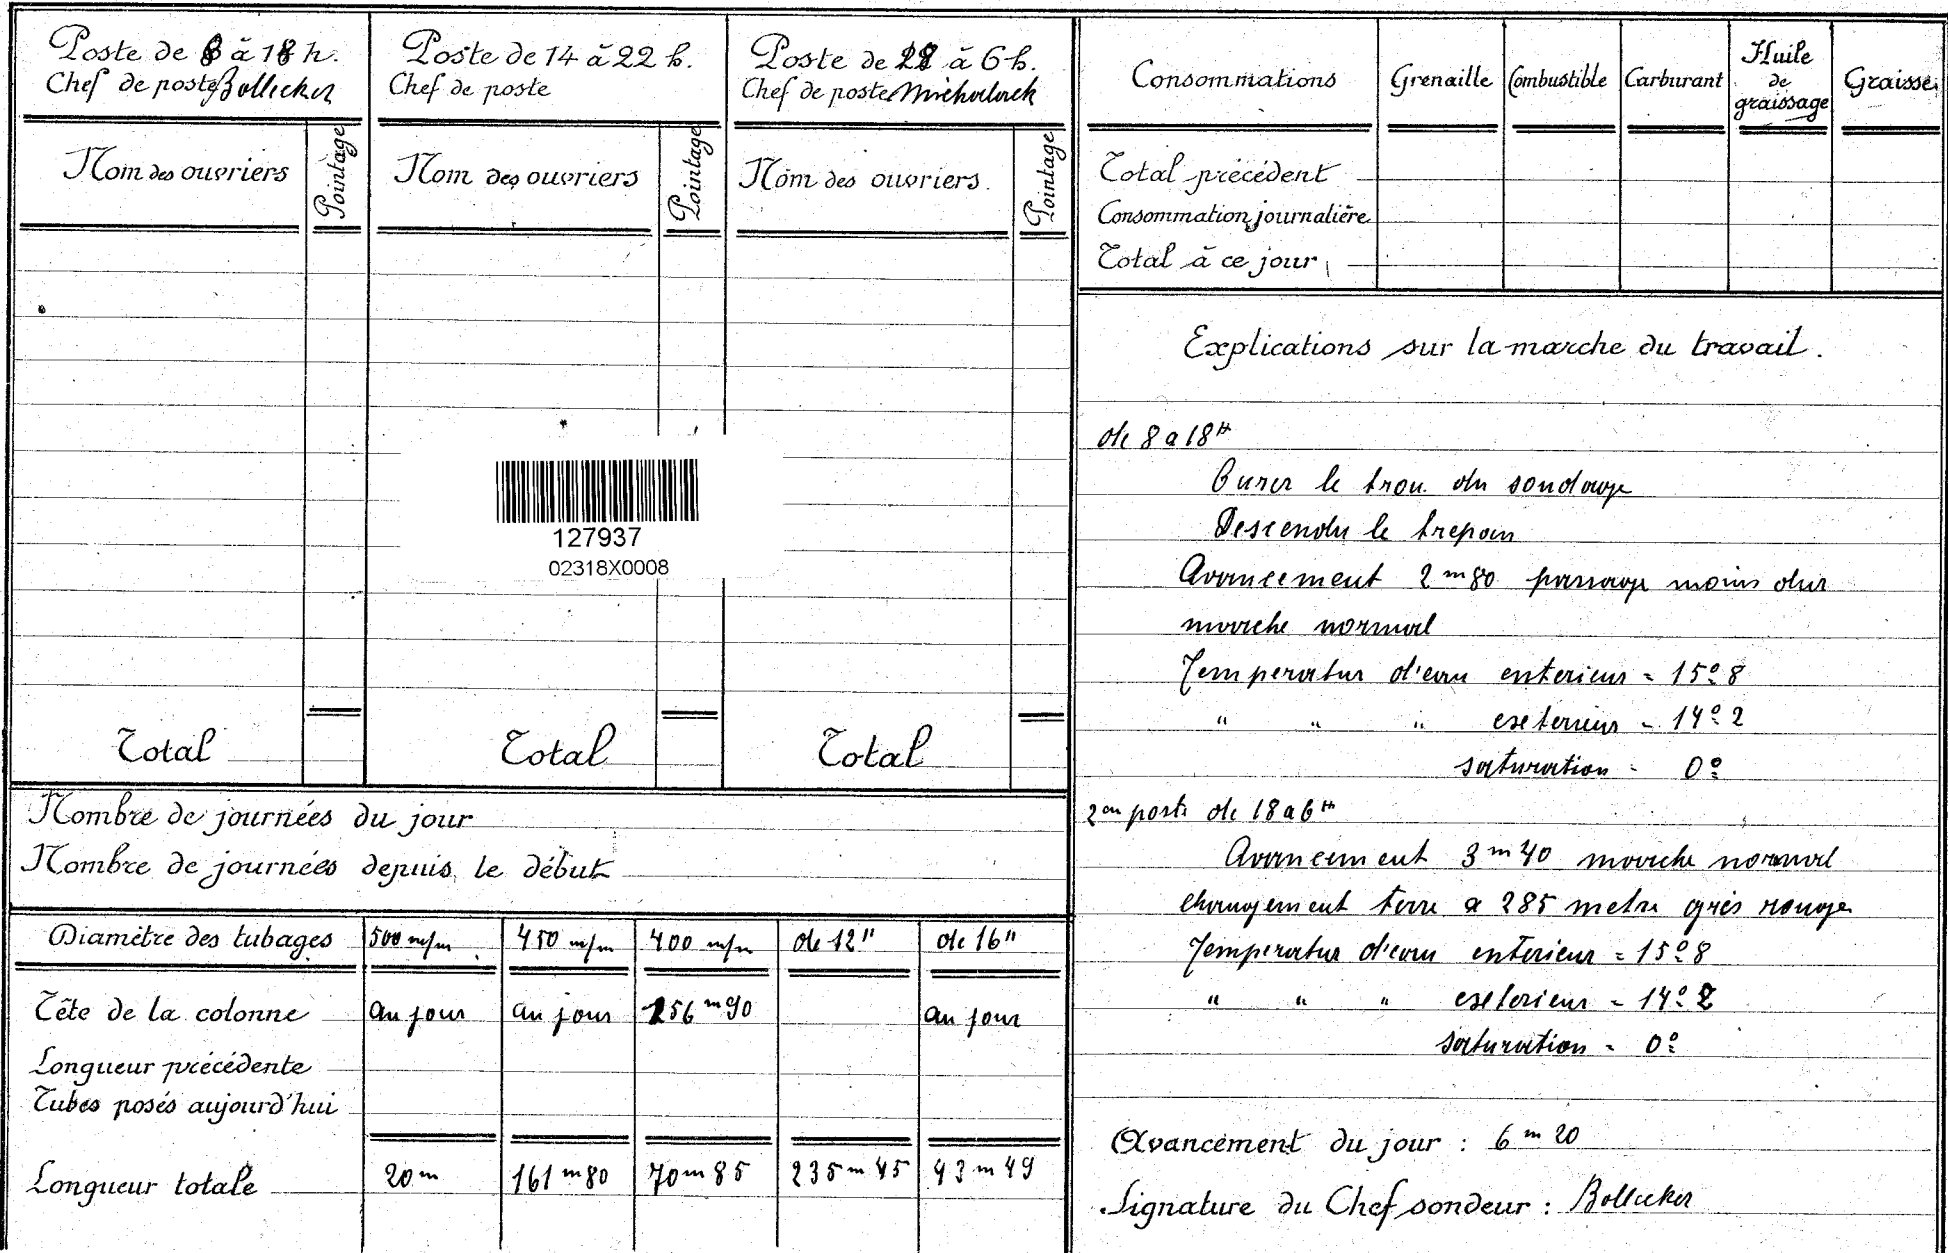 Poste de 8 à 18 h.
Chef de poste Bollecker
Nom des ouvriers
Pointage
Total
Poste de 14 à 22 h.
Chef de poste
Nom des ouvriers
Pointage
Total
Poste de 18 à 6 h.
Chef de poste
Nom des ouvriers
Pointage
Total
127937
02318X0008
Nombre de journées du jour
Nombre de journées depuis le début
Diamètre des tubages 500 m/m 450 m/m 400 m/m de 12" de 16"
Tête de la colonne au jour au jour 156 m 90 au jour
Longueur précédente
Tubes posés aujourd'hui
Longueur totale 20 m 161 m 80 70 m 85 235 m 45 43 m 49
Consommations Grenaille Combustible Carburant Huile de graissage Graisse
Total précédent
Consommation journalière
Total à ce jour
Explications sur la marche du travail.
de 8 a 18 H
Curer le trou du sondage
Descendu le trepan
Avancement 2 m 80 passage moins dur
marche normal
Temperatur d'eau enterieur = 15° 8
" " " exeterieur = 14° 2
saturation = 0°
2em poste de 18 a 6 H
Avancement 3 m 40 marche normal
changement terre a 285 metre grès rouge
Temperatur d'eau enterieur = 15° 8
" " " exeterieur = 14° 2
saturation = 0°
Avancement du jour : 6 m 20
Signature du Chef sondeur : Bollecker